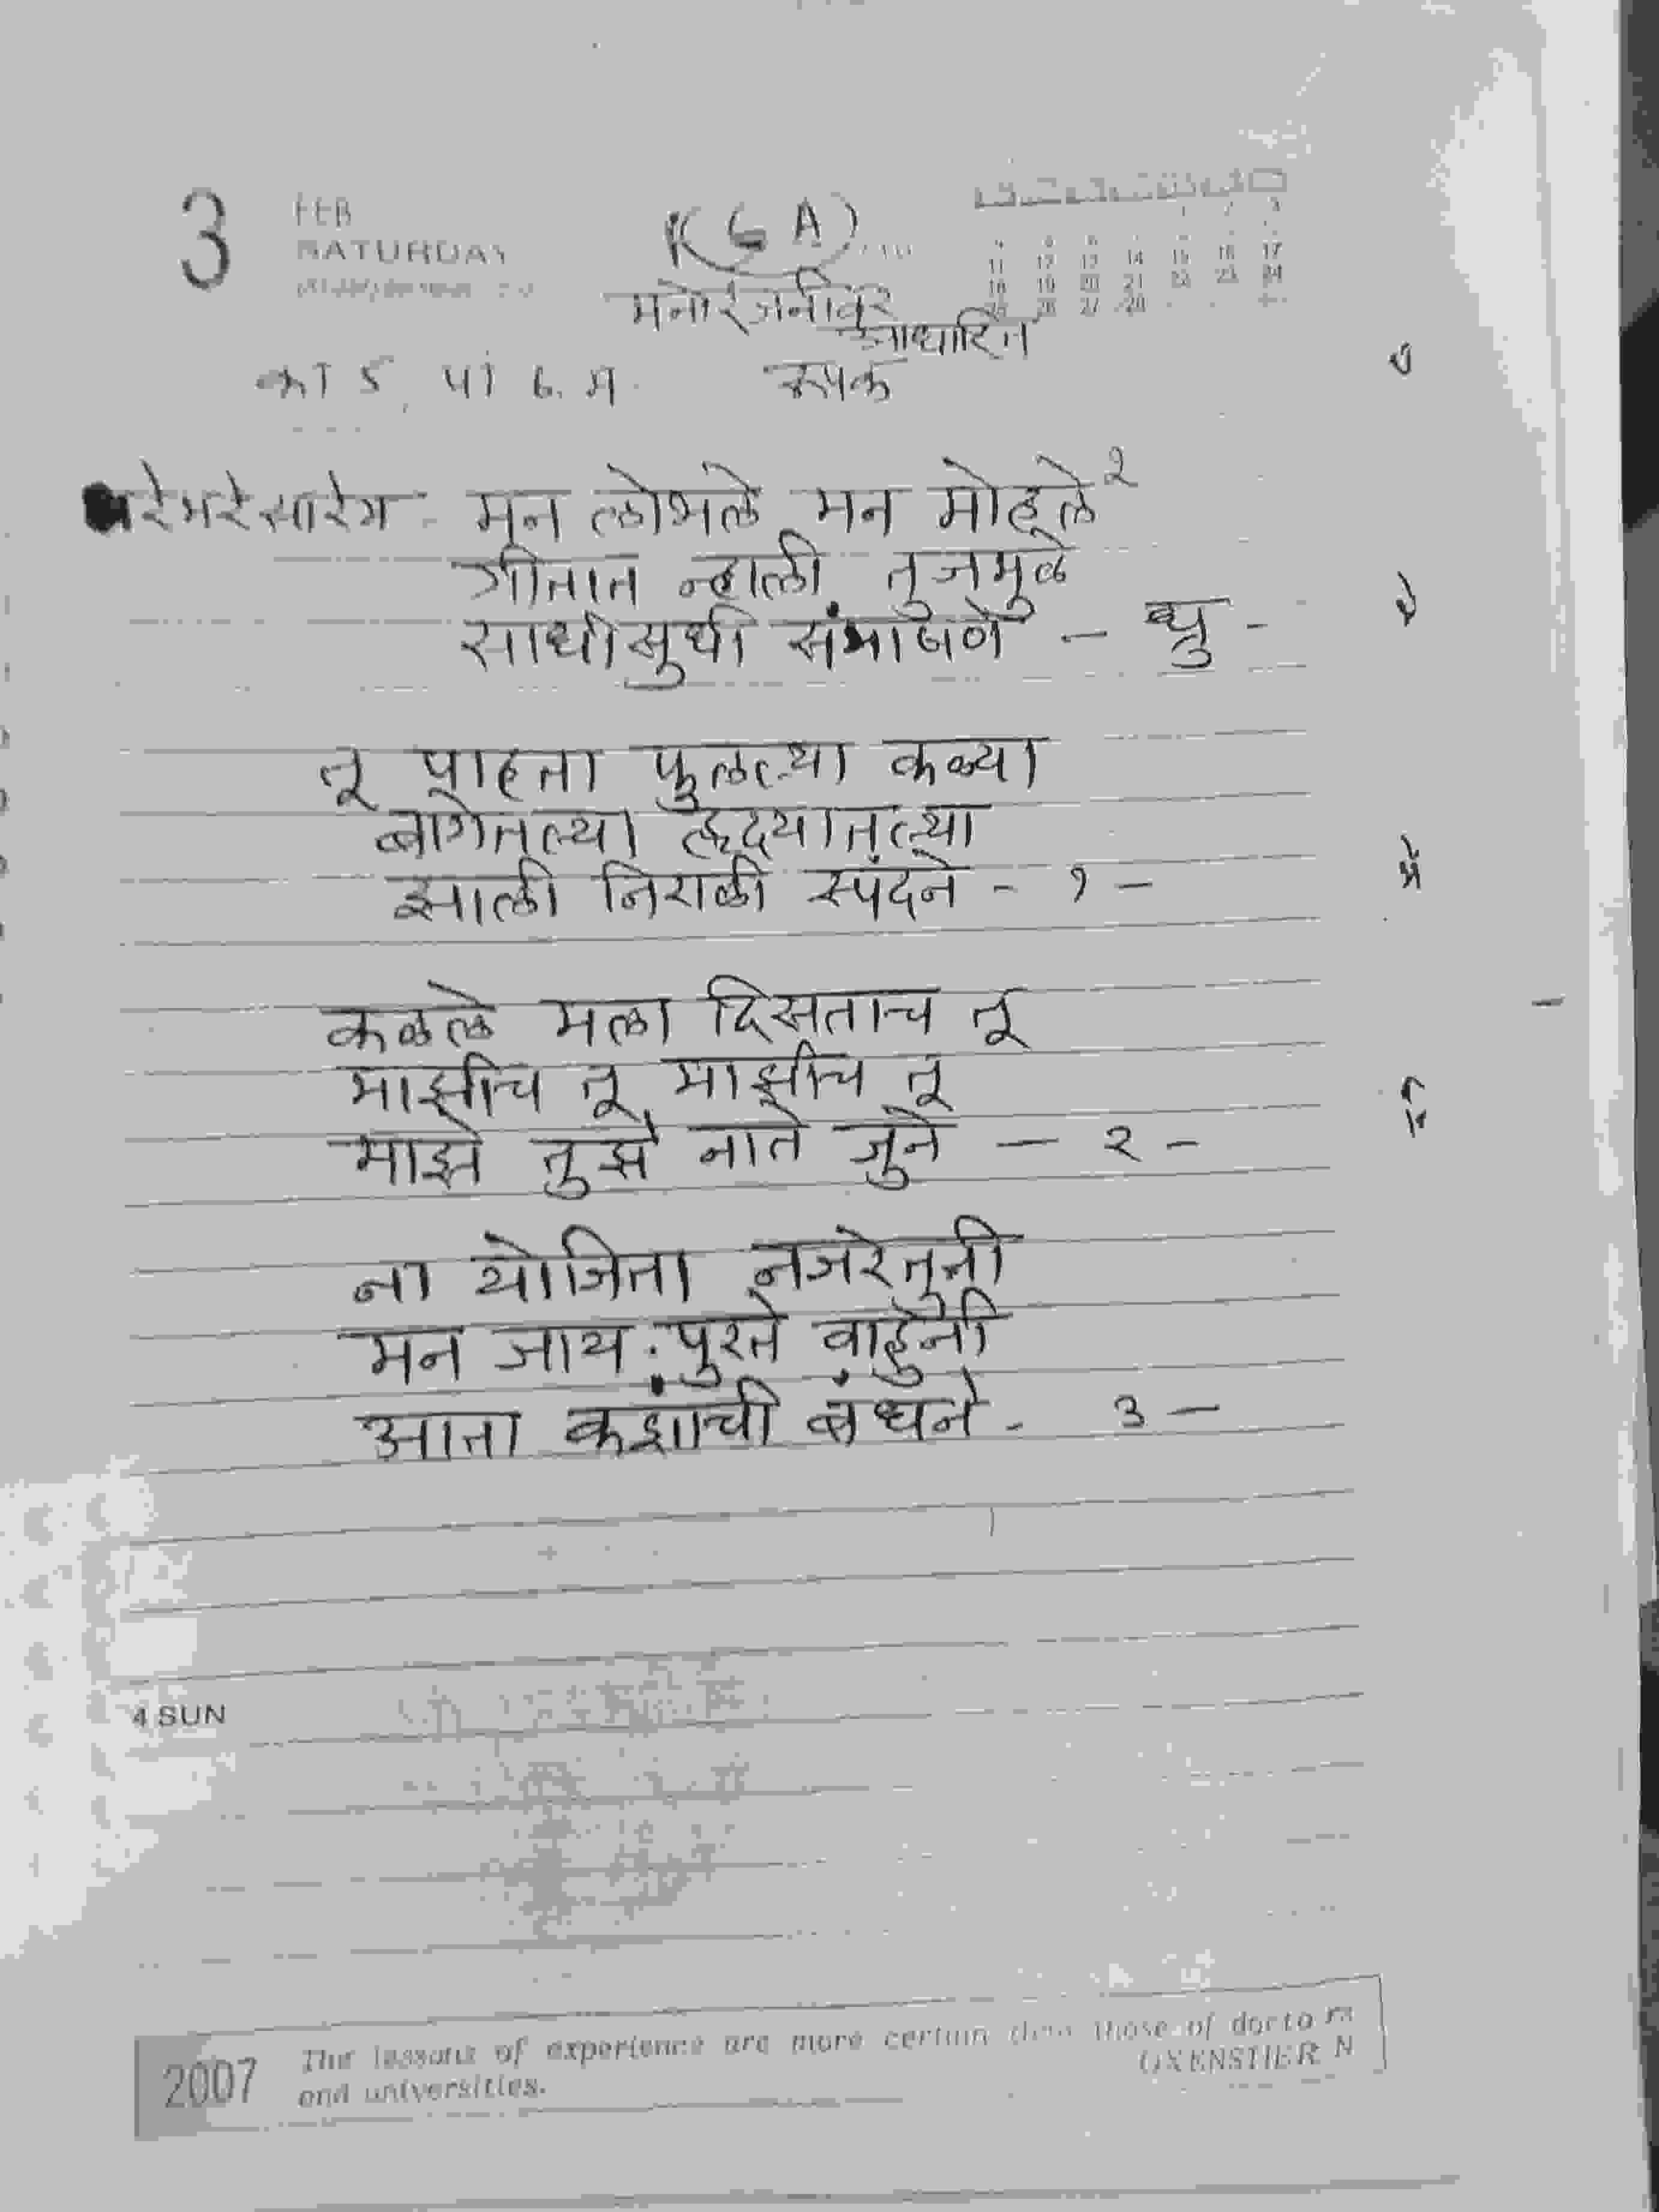 3 FEB
SATURDAY
(6 A)
मनोरंजनीवर
आधारित
का 5, पां 6. म. रूपक
रेमरेसारेग - मन लोभले मन मोहले २
गीतात न्हाली तुजमुळे
साधीसुधी संभाषणे - धृ -
तू पाहता फुलल्या कळ्या
बागेतल्या हृदयातल्या
झाली निराळी स्पंदने - १ -
कळले मला दिसताच तू
माझीच तू माझीच तू
माझे तुझे नाते जुने - २ -
ना योजिता नजरेतुनी
मन जाय पुरते वाहुनी
आता कशाची बंधने - ३ -
4 SUN
2007 The lessons of experience are more certain than those of doctors
and universities. OXENSTIERN